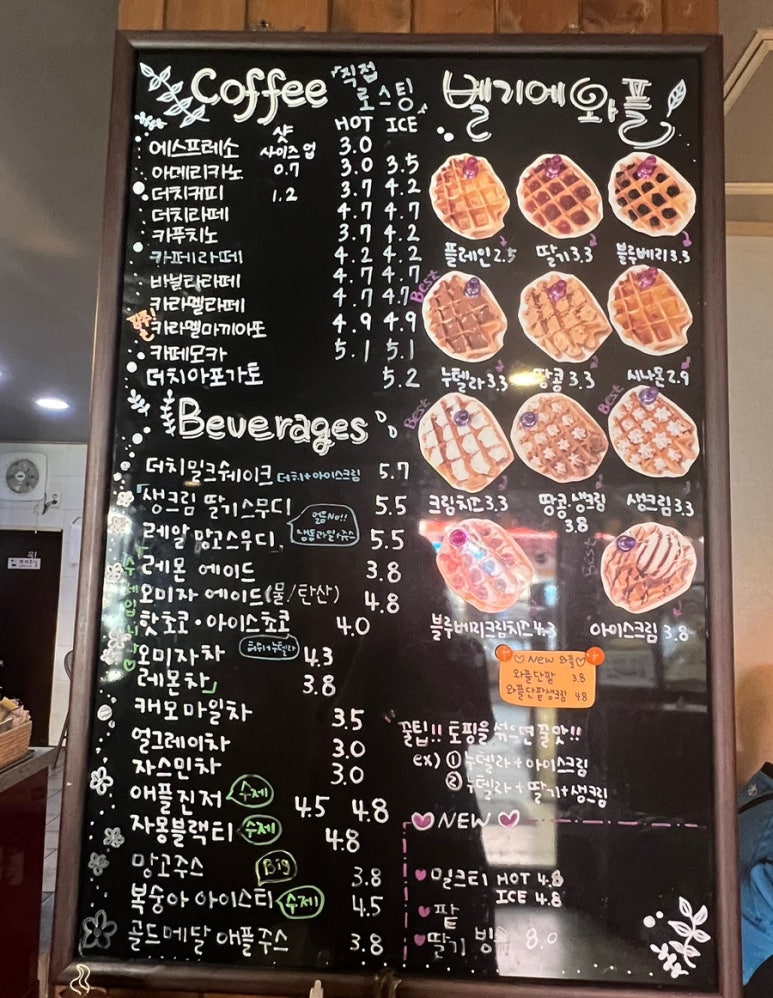 Coffee 직접 로스팅
HOT ICE
샷
사이즈 업
에스프레소 3.0
아메리카노 0.7 3.0 3.5
더치커피 1.2 3.7 4.2
더치라떼 4.7 4.7
카푸치노 3.7 4.2
카페라떼 4.2 4.2
바닐라라떼 4.7 4.7
카라멜라떼 4.7 4.7
카라멜마끼아또 4.9 4.9
카페모카 5.1 5.1
더치아포가토 5.2
Beverages
더치밀크쉐이크 더치+아이스크림 5.7
생크림 딸기스무디 5.5
얼음No!!
냉동과일+쥬스
레알 망고스무디 5.5
레몬 에이드 3.8
오미자 에이드(물/탄산) 4.8
핫초코·아이스쵸코 4.0
오미자차 4.3
레몬차 3.8
수제입니다
캐모마일차 3.5
얼그레이차 3.0
자스민차 3.0
애플진저 수제 4.5 4.8
자몽블랙티 수제 4.8
망고쥬스 Big 3.8
복숭아 아이스티 수제 4.5
골드메달 애플쥬스 3.8
벨기에 와플
플레인 2.5 딸기 3.3 블루베리 3.3
Best
누텔라 3.3 땅콩 3.3 시나몬 2.9
Best Best
크림치즈 3.3 땅콩생크림 3.8 생크림 3.3
Best
블루베리크림치즈 4.3 아이스크림 3.8
NEW 와플
와플단팥 3.8
와플단팥생크림 4.8
꿀팁!! 토핑을 섞으면 꿀맛!!
ex) ① 누텔라+아이스크림
② 누텔라+딸기+생크림
NEW
밀크티 HOT 4.8
ICE 4.8
팥
딸기 빙수 8.0